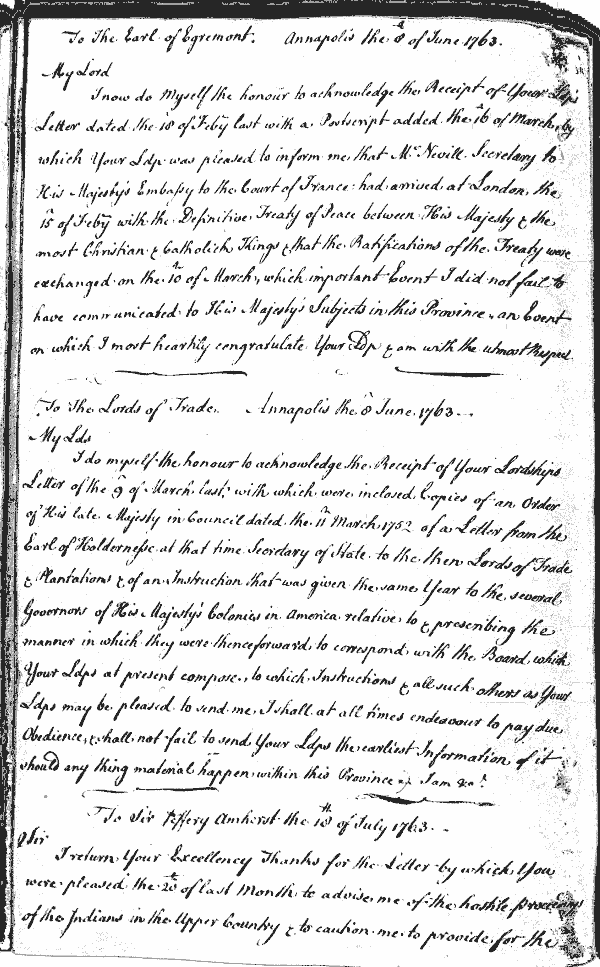 To The Earl of Egremont. Annapolis the 8th of June 1763.
My Lord
I now do Myself the honour to acknowledge the Receipt of Your Ldp's
Letter dated the 18th of Feby last with a Postscript added the 16th of March, by
which Your Ldp was pleased to inform me that Mr Nevill Secretary to
His Majesty's Embassy to the Court of France had arrived at London the
15th of Feby with the Definitive Treaty of Peace between His Majesty & the
most Christian & Catholick Kings & that the Ratifications of the Treaty were
exchanged on the 10th of March, which important Event I did not fail to
have communicated to His Majesty's Subjects in this Province, an Event
on which I most heartily congratulate Your Ldp & am with the utmost Respect
To The Lords of Trade. Annapolis the 8th June 1763.
My Lds
I do myself the honour to acknowledge the Receipt of Your Lordships
Letter of the 9th of March last, with which were inclosed Copies of an Order
of His late Majesty in Council dated the 11th March 1752 of a Letter from the
Earl of Holdernesse at that time Secretary of State to the then Lords of Trade
& Plantations & of an Instruction that was given the same Year to the several
Governors of His Majesty's Colonies in America relative to & prescribing the
manner in which they were thenceforward to correspond with the Board which
Your Ldps at present compose, to which Instructions & all such others as Your
Ldps may be pleased to send me, I shall at all times endeavour to pay due
Obedience, & shall not fail to send Your Ldps the earliest Information of it
should any thing material happen within this Province. I am &ca.
To Sir Jeffery Amherst the 18th of July 1763.
Sir
I return Your Excellency Thanks for the Letter by which You
were pleased the 25th of last Month to advise me of the hostile proceedings
of the Indians in the Upper Country & to caution me to provide for the